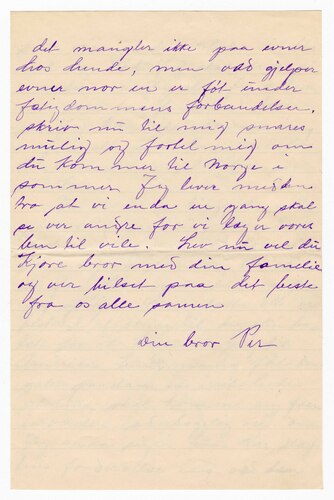 det mangler ikke paa evner
hos hende, men vad gjelper
evner nor en er føt under
fatigdommens forbandelser.
skriv nu til mig snares
mulig og fortel mig om
du kommer til Norge i
sommer Jeg lever med den
tro at vi enda en gang skal
se ver andre før vi læger vore
ben til vile. Lev nu vel du
kjære bror med din familie
og ver hilset paa det beste
fra os alle samen
din bror Per